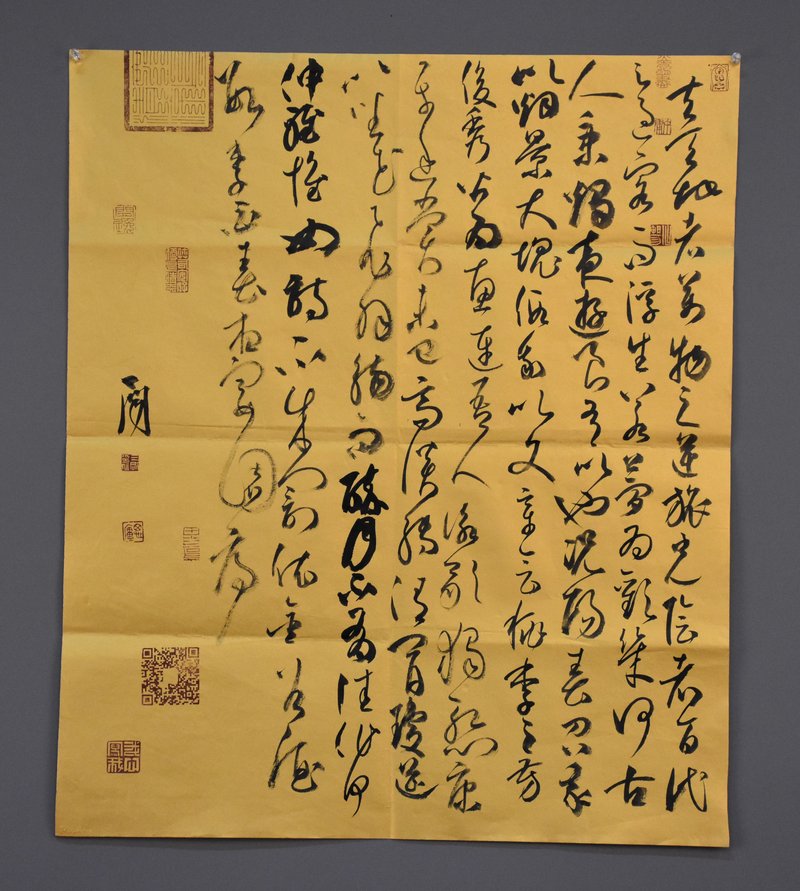 夫天地者萬物之逆旅光陰者百代
之過客而浮生若夢為歡幾何古
人秉燭夜遊良有以也況陽春召我
以烟景大塊假我以文章會桃李之芳
俊秀皆為惠連吾人詠歌獨慙康
樂幽賞未已高談轉清開瓊筵
以坐花飛羽觴而醉月不有佳作何
伸雅懷如詩不成罰依金谷酒
數李白春夜宴園序